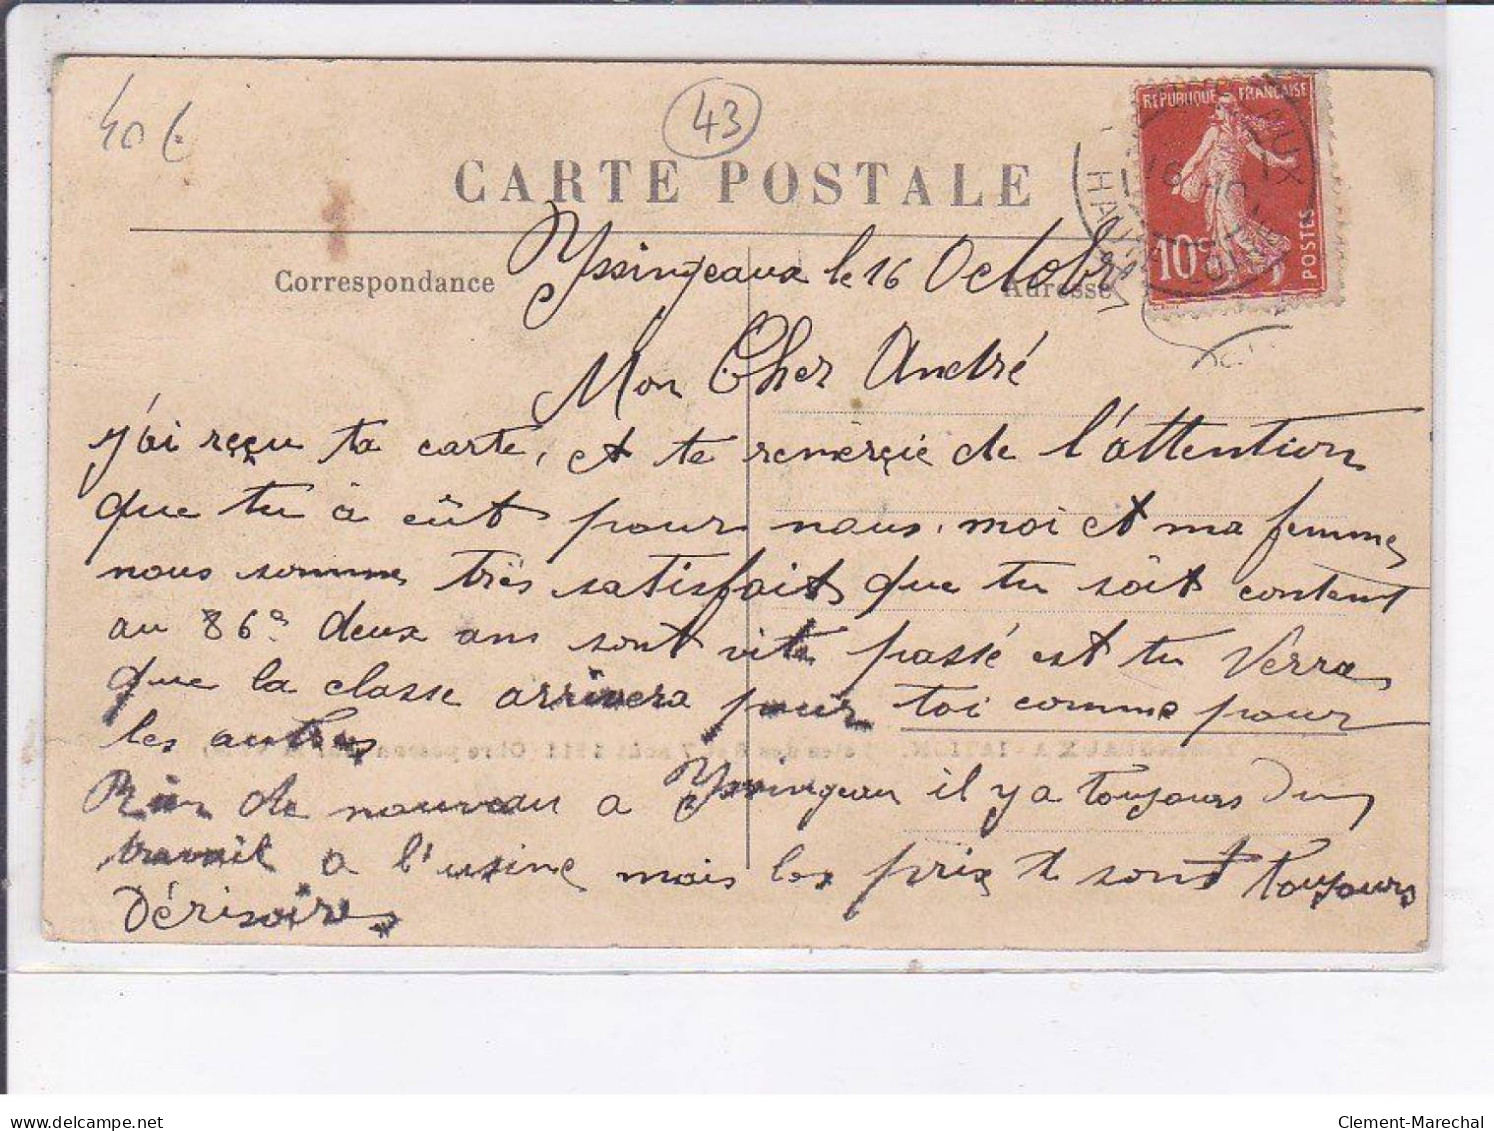 40€
43
CARTE POSTALE
REPUBLIQUE FRANÇAISE
10c
POSTES
Correspondance
Adresse
Yssingeaux le 16 Octobre
Mon Cher André
j'ai reçu ta carte, et te remerçie de l'attention
que tu à eût pour nous, moi et ma femme
nous somme très satisfait que tu soit content
au 86e deux ans sont vite passé et tu Verra
que la classe arrivera pour toi comme pour
les autres
Rien de nouveau a Yssingeau il y a toujours Du
travail a l'usine mais les prix sont toujours
Dérisoires
delcampe.net
Clement-Marechal